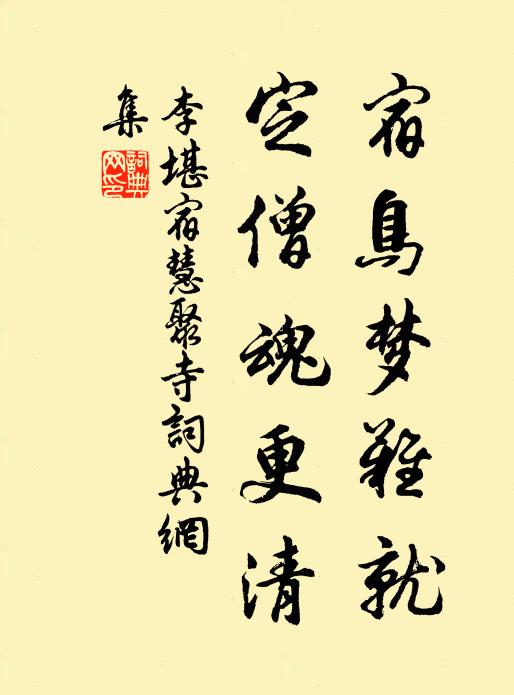 宿鳥梦難就
定僧魂更清
李堪宿慧聚寺詞典網
集
詞典
网印